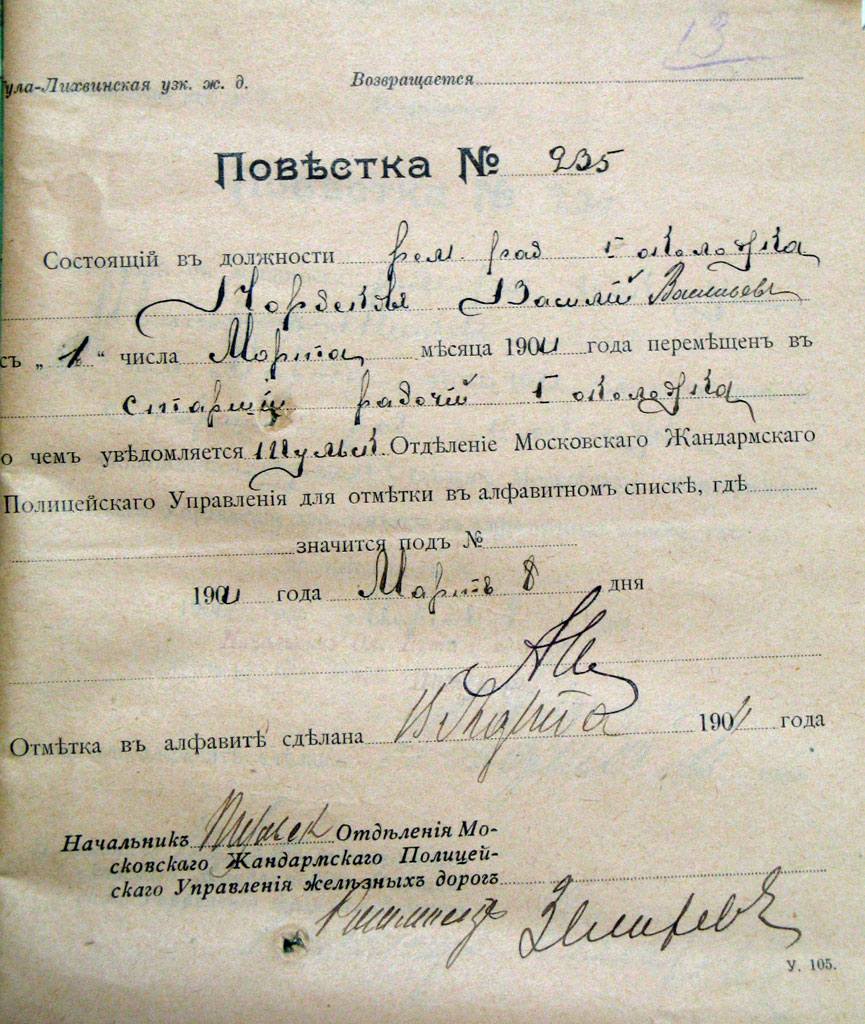 13
Тула-Лихвинская узк. ж. д. Возвращается
Повѣстка № 235
Состоящій въ должности рем. раб I околодка
Василій Васильевъ
съ „ 1 “ числа Марта мѣсяца 1904 года перемѣщен въ
старшій рабочій I околодка
о чемъ увѣдомляется Тульск Отдѣленіе Московскаго Жандармскаго
Полицейскаго Управленія для отмѣтки въ алфавитномъ спискѣ, гдѣ
значится подъ №
1904 года Мартъ 8 дня
Отмѣтка въ алфавитѣ сдѣлана Марта 1904 года
Начальникъ Тульск Отдѣленія Мо-
сковскаго Жандармскаго Полицей-
скаго Управленія желѣзныхъ дорогъ
Ротмистръ
У. 105.